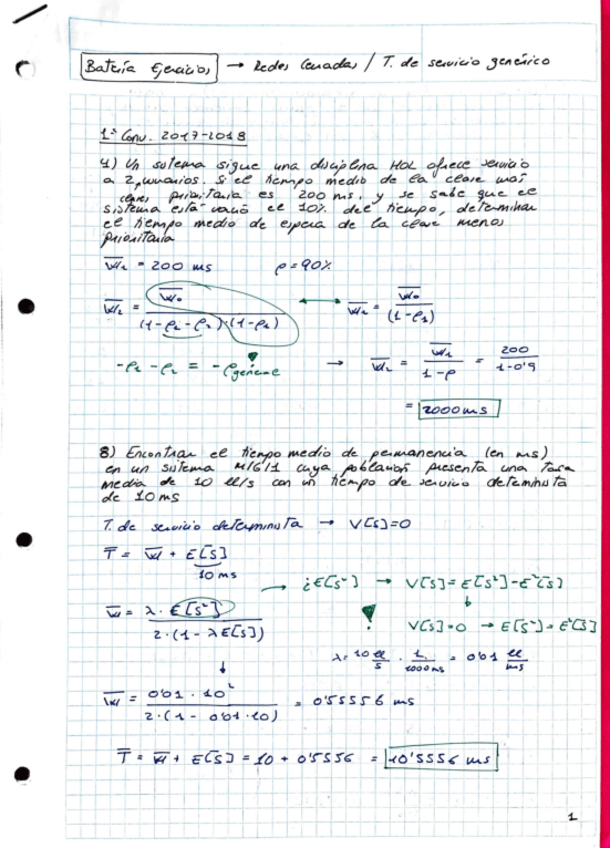 Batería Ejercicios → Redes Cerradas / T. de servicio genérico
1ª Conv. 2017-2018
4) Un sistema sigue una disciplina HOL ofrece servicio
a 2 usuarios. Si el tiempo medio de la clase mas
clases prioritaria es 200 ms. y se sabe que el
sistema está vacío el 10% del tiempo, determinar
el tiempo medio de espera de la clase menos
prioritaria
W₁ = 200 ms ρ = 90%
W₂ = W₀ / ((1-ρ₁-ρ₂)·(1-ρ₁)) ↔ W₁ = W₀ / (1-ρ₁)
-ρ₁ - ρ₂ = -ρ general → W₂ = W₁ / (1-ρ) = 200 / (1-0'9)
= 2000 ms
8) Encontrar el tiempo medio de permanencia (en ms)
en un sistema M/G/1 cuya poblacion presenta una tasa
media de 10 ll/s con un tiempo de servicio determinista
de 10 ms
T. de servicio determinista → V[S]=0
T = W + E[S]
10 ms
¿E[S²] → V[S] = E[S²]-E²[S]
W = λ · E[S²] / (2·(1-λE[S]))
V[S]=0 → E[S²] = E²[S]
λ = 10 ll/s · 1/1000 ms = 0'01 ll/ms
W = 0'01 · 10² / (2·(1-0'01·10)) = 0'55556 ms
T = W + E[S] = 10 + 0'5556 = 10'5556 ms
1